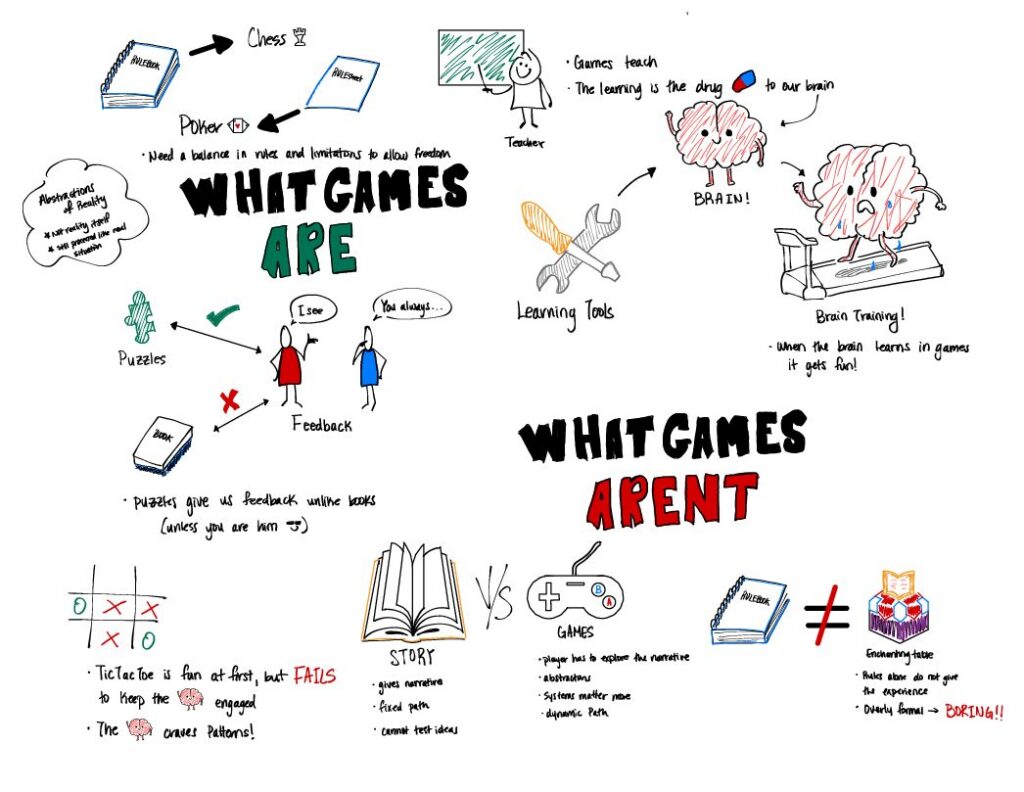 RULEBOOK
Chess
RULESheet
Poker
• Need a balance in rules and limitations to allow freedom
Abstractions
of Reality
* Not reality itself
* Still processed like real
situation
WHAT GAMES
ARE
Teacher
• Games teach
• The learning is the drug to our brain
BRAIN!
Learning Tools
Brain Training!
• When the brain learns in games
it gets fun!
Puzzles
I see
You always...
Feedback
BOOK
• Puzzles give us feedback unlike books
(unless you are him)
WHAT GAMES
ARENT
O X X
X O
• TicTacToe is fun at first, but FAILS
to keep the engaged
• The craves Patterns!
STORY
• gives narrative
• fixed path
• cannot test ideas
VS
B
A
GAMES
• player has to explore the narrative
• abstractions
• Systems matter more
• dynamic Path
RULEBOOK
≠
Enchanting table
• Rules alone do not give
the experience
• Overly formal → BORING!!